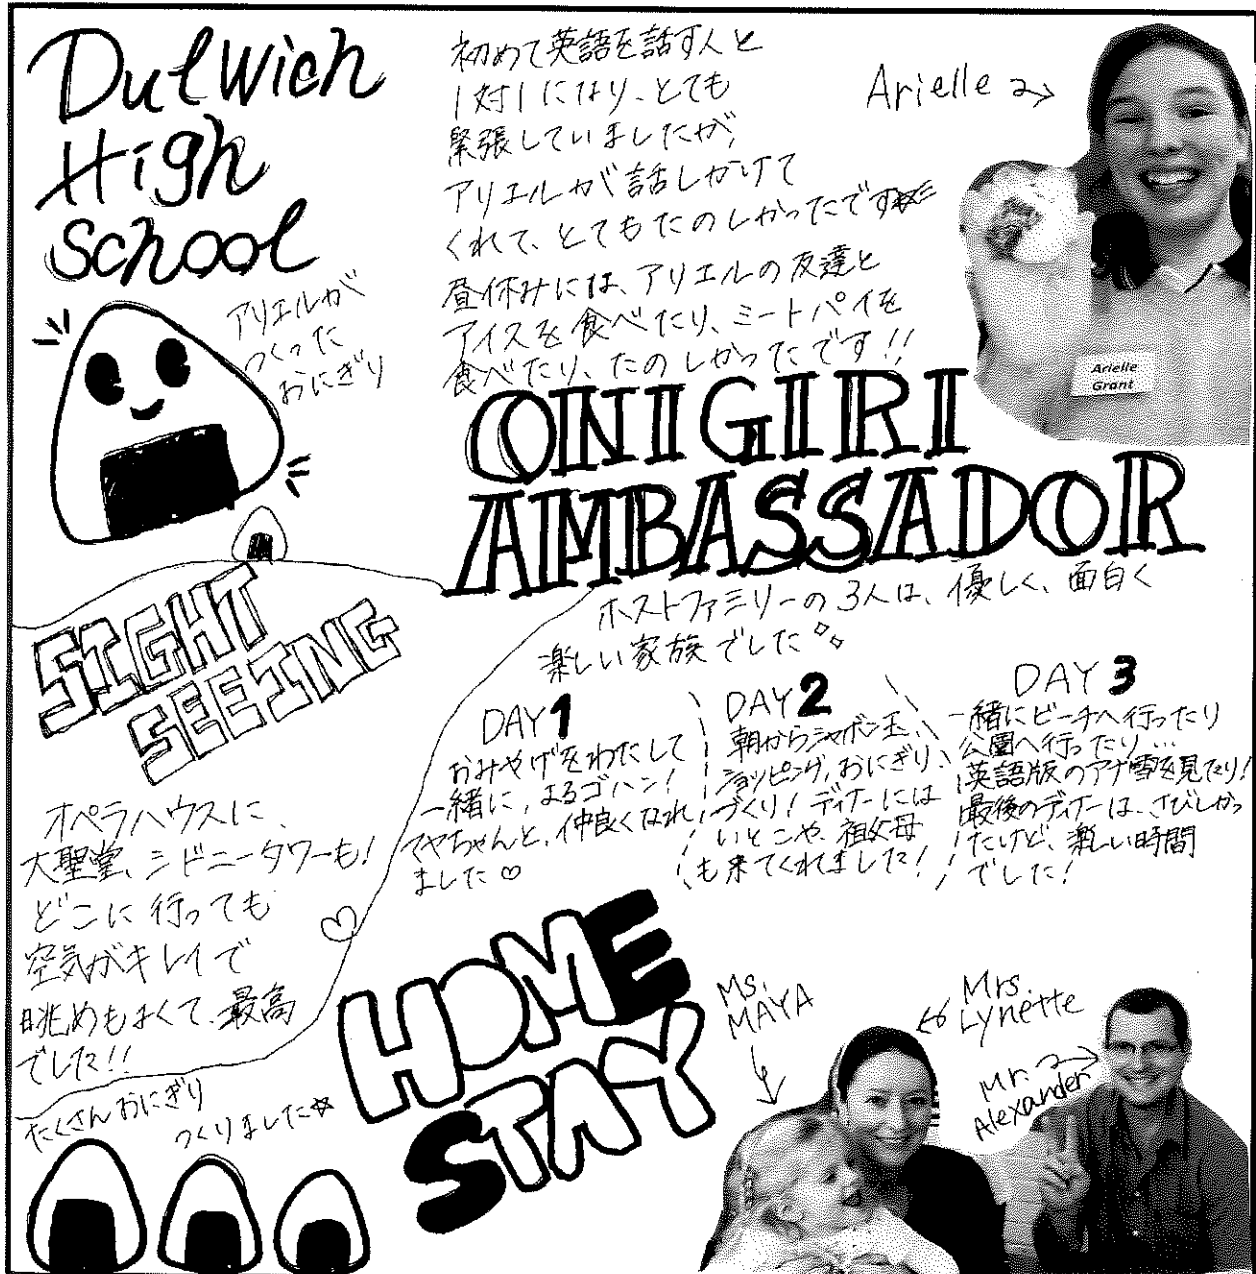 Dulwich
High
School
初めて英語を話す人と
1対1になり、とても
緊張していましたが、
アリエルが話しかけて
くれて、とてもたのしかったです
昼休みには、アリエルの友達と
アイスを食べたり、ミートパイを
食べたり、たのしかったです!!
Arielle
Arielle
Grant
アリエルが
つくった
おにぎり
ONIGIRI
AMBASSADOR
SIGHT
SEEING
オペラハウスに、
大聖堂、シドニータワーも!
どこに行っても
空気がキレイで
眺めもよくて、最高
でした!!
ホストファミリーの3人は、優しく、面白く
楽しい家族でした
DAY 1
おみやげをわたして
一緒に、よるゴハン!
マヤちゃんと、仲良くなれ
ました♡
DAY 2
朝からシャボン玉、
ショッピング、おにぎり
づくり! ディナーには
いとこや、祖父母
も来てくれました!
DAY 3
一緒にビーチへ行ったり
公園へ行ったり…
英語版のアナ雪を見たり!
最後のディナーは、さびしかっ
たけど、楽しい時間
でした!
HOME
STAY
たくさんおにぎり
つくりました☆
Ms.
MAYA
Mrs.
Lynette
Mr.
Alexander